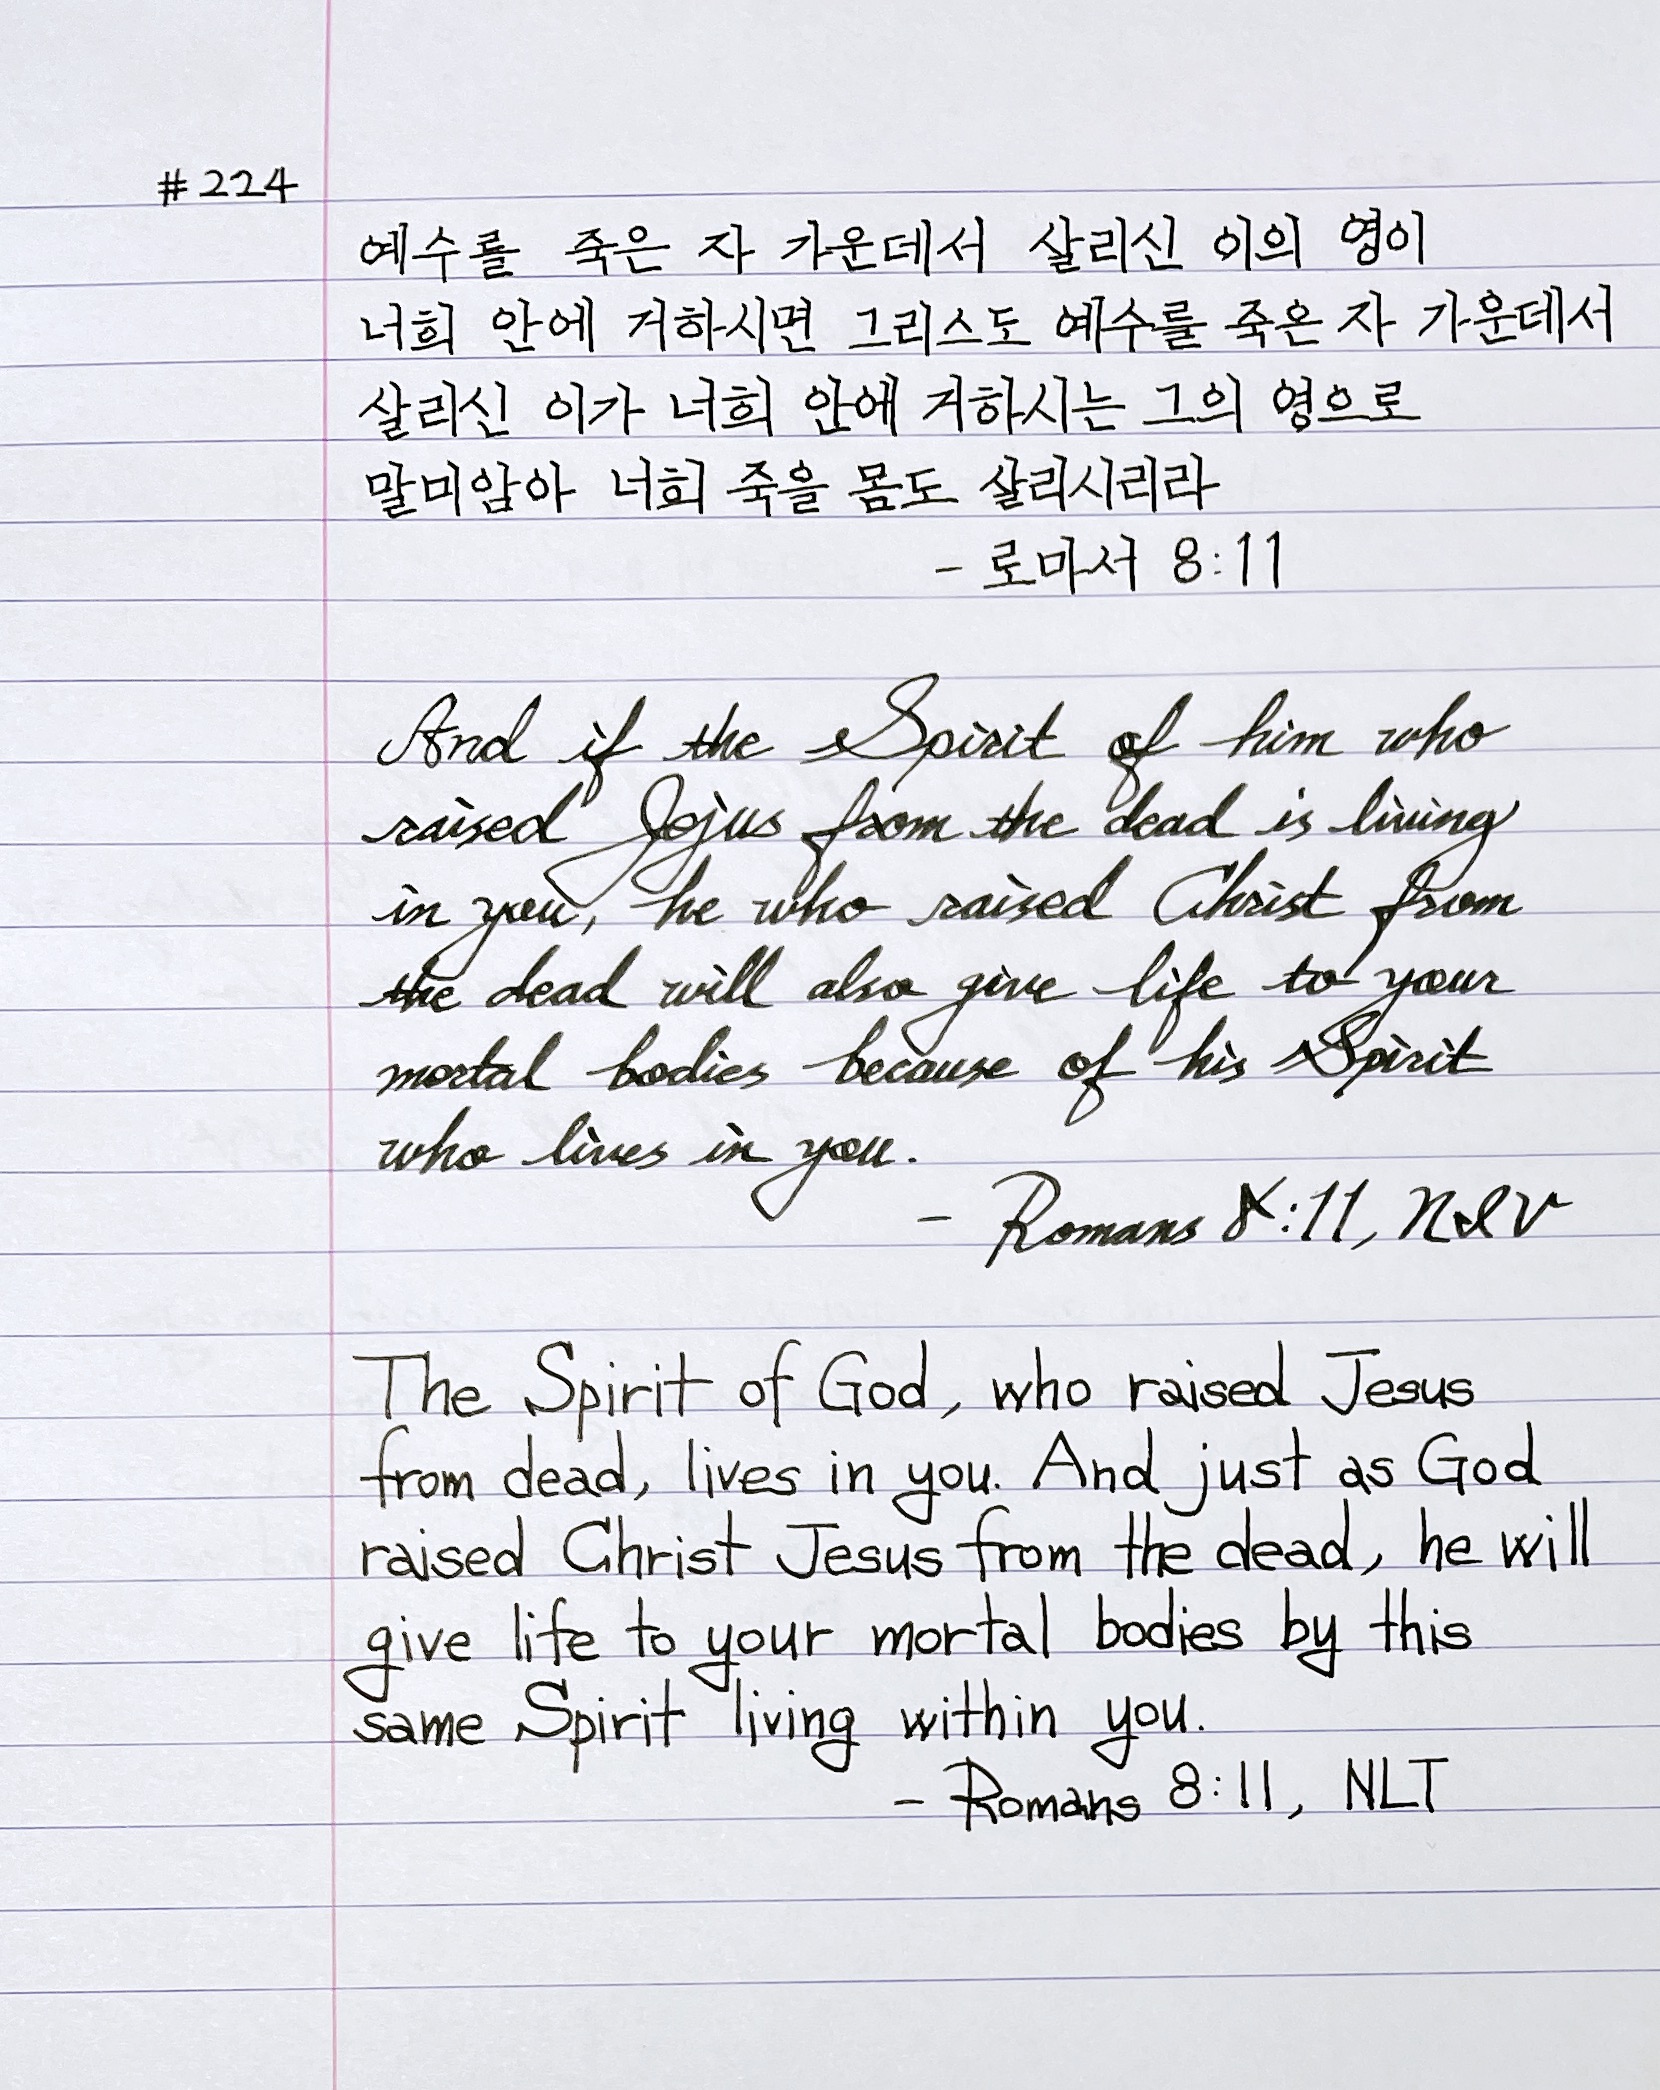 #224
예수를 죽은 자 가운데서 살리신 이의 영이
너희 안에 거하시면 그리스도 예수를 죽은 자 가운데서
살리신 이가 너희 안에 거하시는 그의 영으로
말미암아 너희 죽을 몸도 살리시리라
- 로마서 8:11
And if the Spirit of him who
raised Jesus from the dead is living
in you, he who raised Christ from
the dead will also give life to your
mortal bodies because of his Spirit
who lives in you.
- Romans 8:11, NIV
The Spirit of God, who raised Jesus
from dead, lives in you. And just as God
raised Christ Jesus from the dead, he will
give life to your mortal bodies by this
same Spirit living within you.
- Romans 8:11, NLT